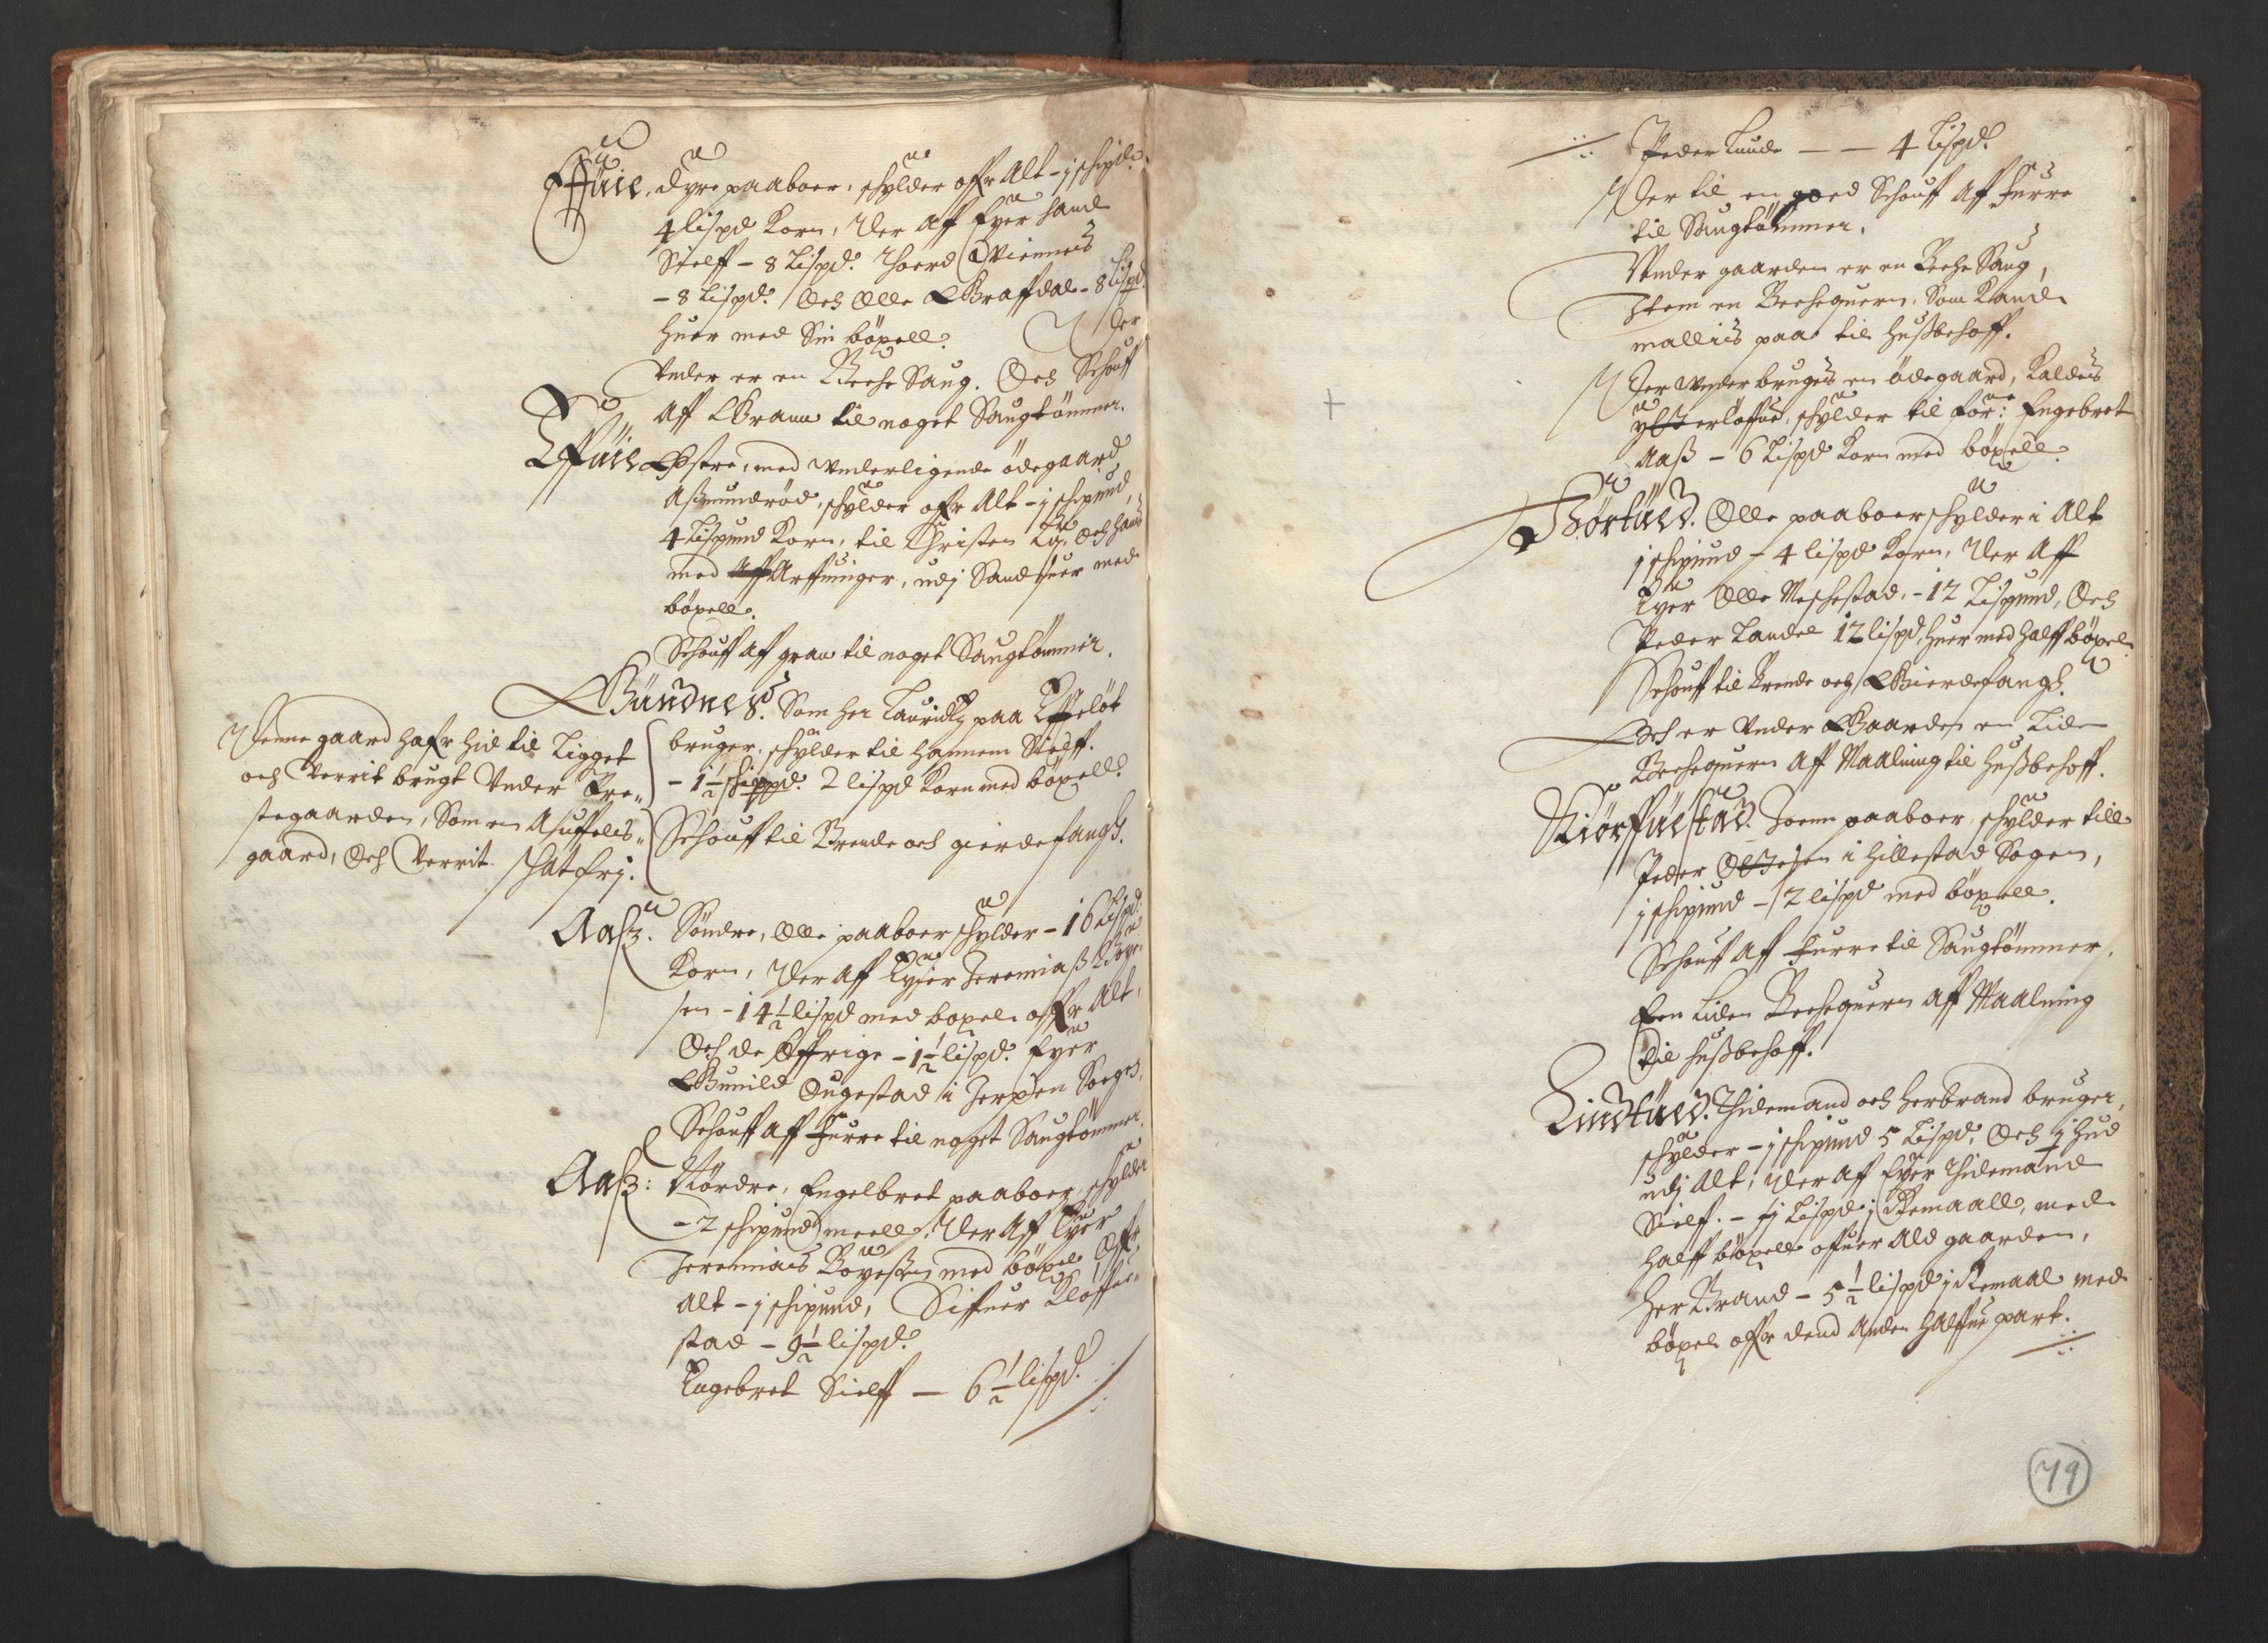 dyre paaboer, schylder offr Alt - j schipd
4 lispd Korn, Der Aff Eyer hand
Sielff - 8 Lispd. Thoerd
- 8 Lispd. Och Olle Grafdal - 8 Lispd.
huer med Sin böxell. Der
under er en Beche Saug. Och Schouff
Aff Grann til noget Saugtömmer.
Østre, med underligende ödegaard
Asmundröd, schylder offr Alt - j schipund,
4 Lispund Korn, til Christen och hans
med Arffuinger, udj Sand huer med
böxell.
Schouff Aff gran til noget Saugtömmer.
Gundnes. Som her Lauridtz paa
bruger, schylder til hannem Sielff.
- 1 1/2 schippd. 2 lispd Korn med böxell.
Schouff til Brende och gierdefangs.
Denne gaard hafr hid til Ligget
och Verrit brugt Under Pre„
stegaarden, Som en Affuelis„
gaard, Och Verrit schatfrj.
Aasz. Söndre, Olle paaboer schylder - 16 Lispd:
Korn, Der Aff Eyer Jeremias
sen - 14 1/2 lispd med boxel offr Alt,
Och de Øffrige - 1 1/2 lispd. Eyer
Gunild Ougestad i Sogen,
Schouff Aff Furre til noget Saugtömmer.
Aasz: Nördre, Engelbret paaboer, schylder
- 2 schipund meell. Der Aff Eyer
Jeremias med böxel Offr
Alt - j schipund, Siffuer Kloffer„
stad - 9 1/2 lispd.
Engebret Sielff — 6 1/2 lispd.
Peder Lunde — — 4 Lispd.
Der til en goed Schouff Aff Furre
til Saugtömmer.
Under gaarden er en Beche Saug,
Item en Bechequern, Som Kand
mallis paa til husbehoff.
Der under brugis en ödegaard, Kaldes
schylder til for: Engebret
Aaß - 6 Lispd Korn med böxell.
Olle paaboer schylder i Alt
j schipund - 4 lispd Korn, Der Aff
Eyer Olle - 12 Lispund, Och
Peder 12 lispd, huer med halff böxel
Schouff til Brende och Gierdefangs.
Och er Under Gaarden en Liden
Bechequern Aff Maalning til husbehoff.
Joenn paaboer, schylder till
Peder Olsen i Hillestad Sogen,
j schipund - 2 lispd med böxell.
Schouff Aff Furre til Saugtömmer.
Een Liden Bechequern Aff Maalning
til husbehoff.
Thidemand och Herbrand bruger,
schylder - j schipund 5 Lispd, Och j hud
udj Alt, Der Aff Eyer Thidemand
Sielff. - Lispd j Remaall, med
halff böxell offuer Ald gaarden,
Her Brand - 5 1/2 lispd j Remaal med
böxel offr dend Anden halffue part.
79